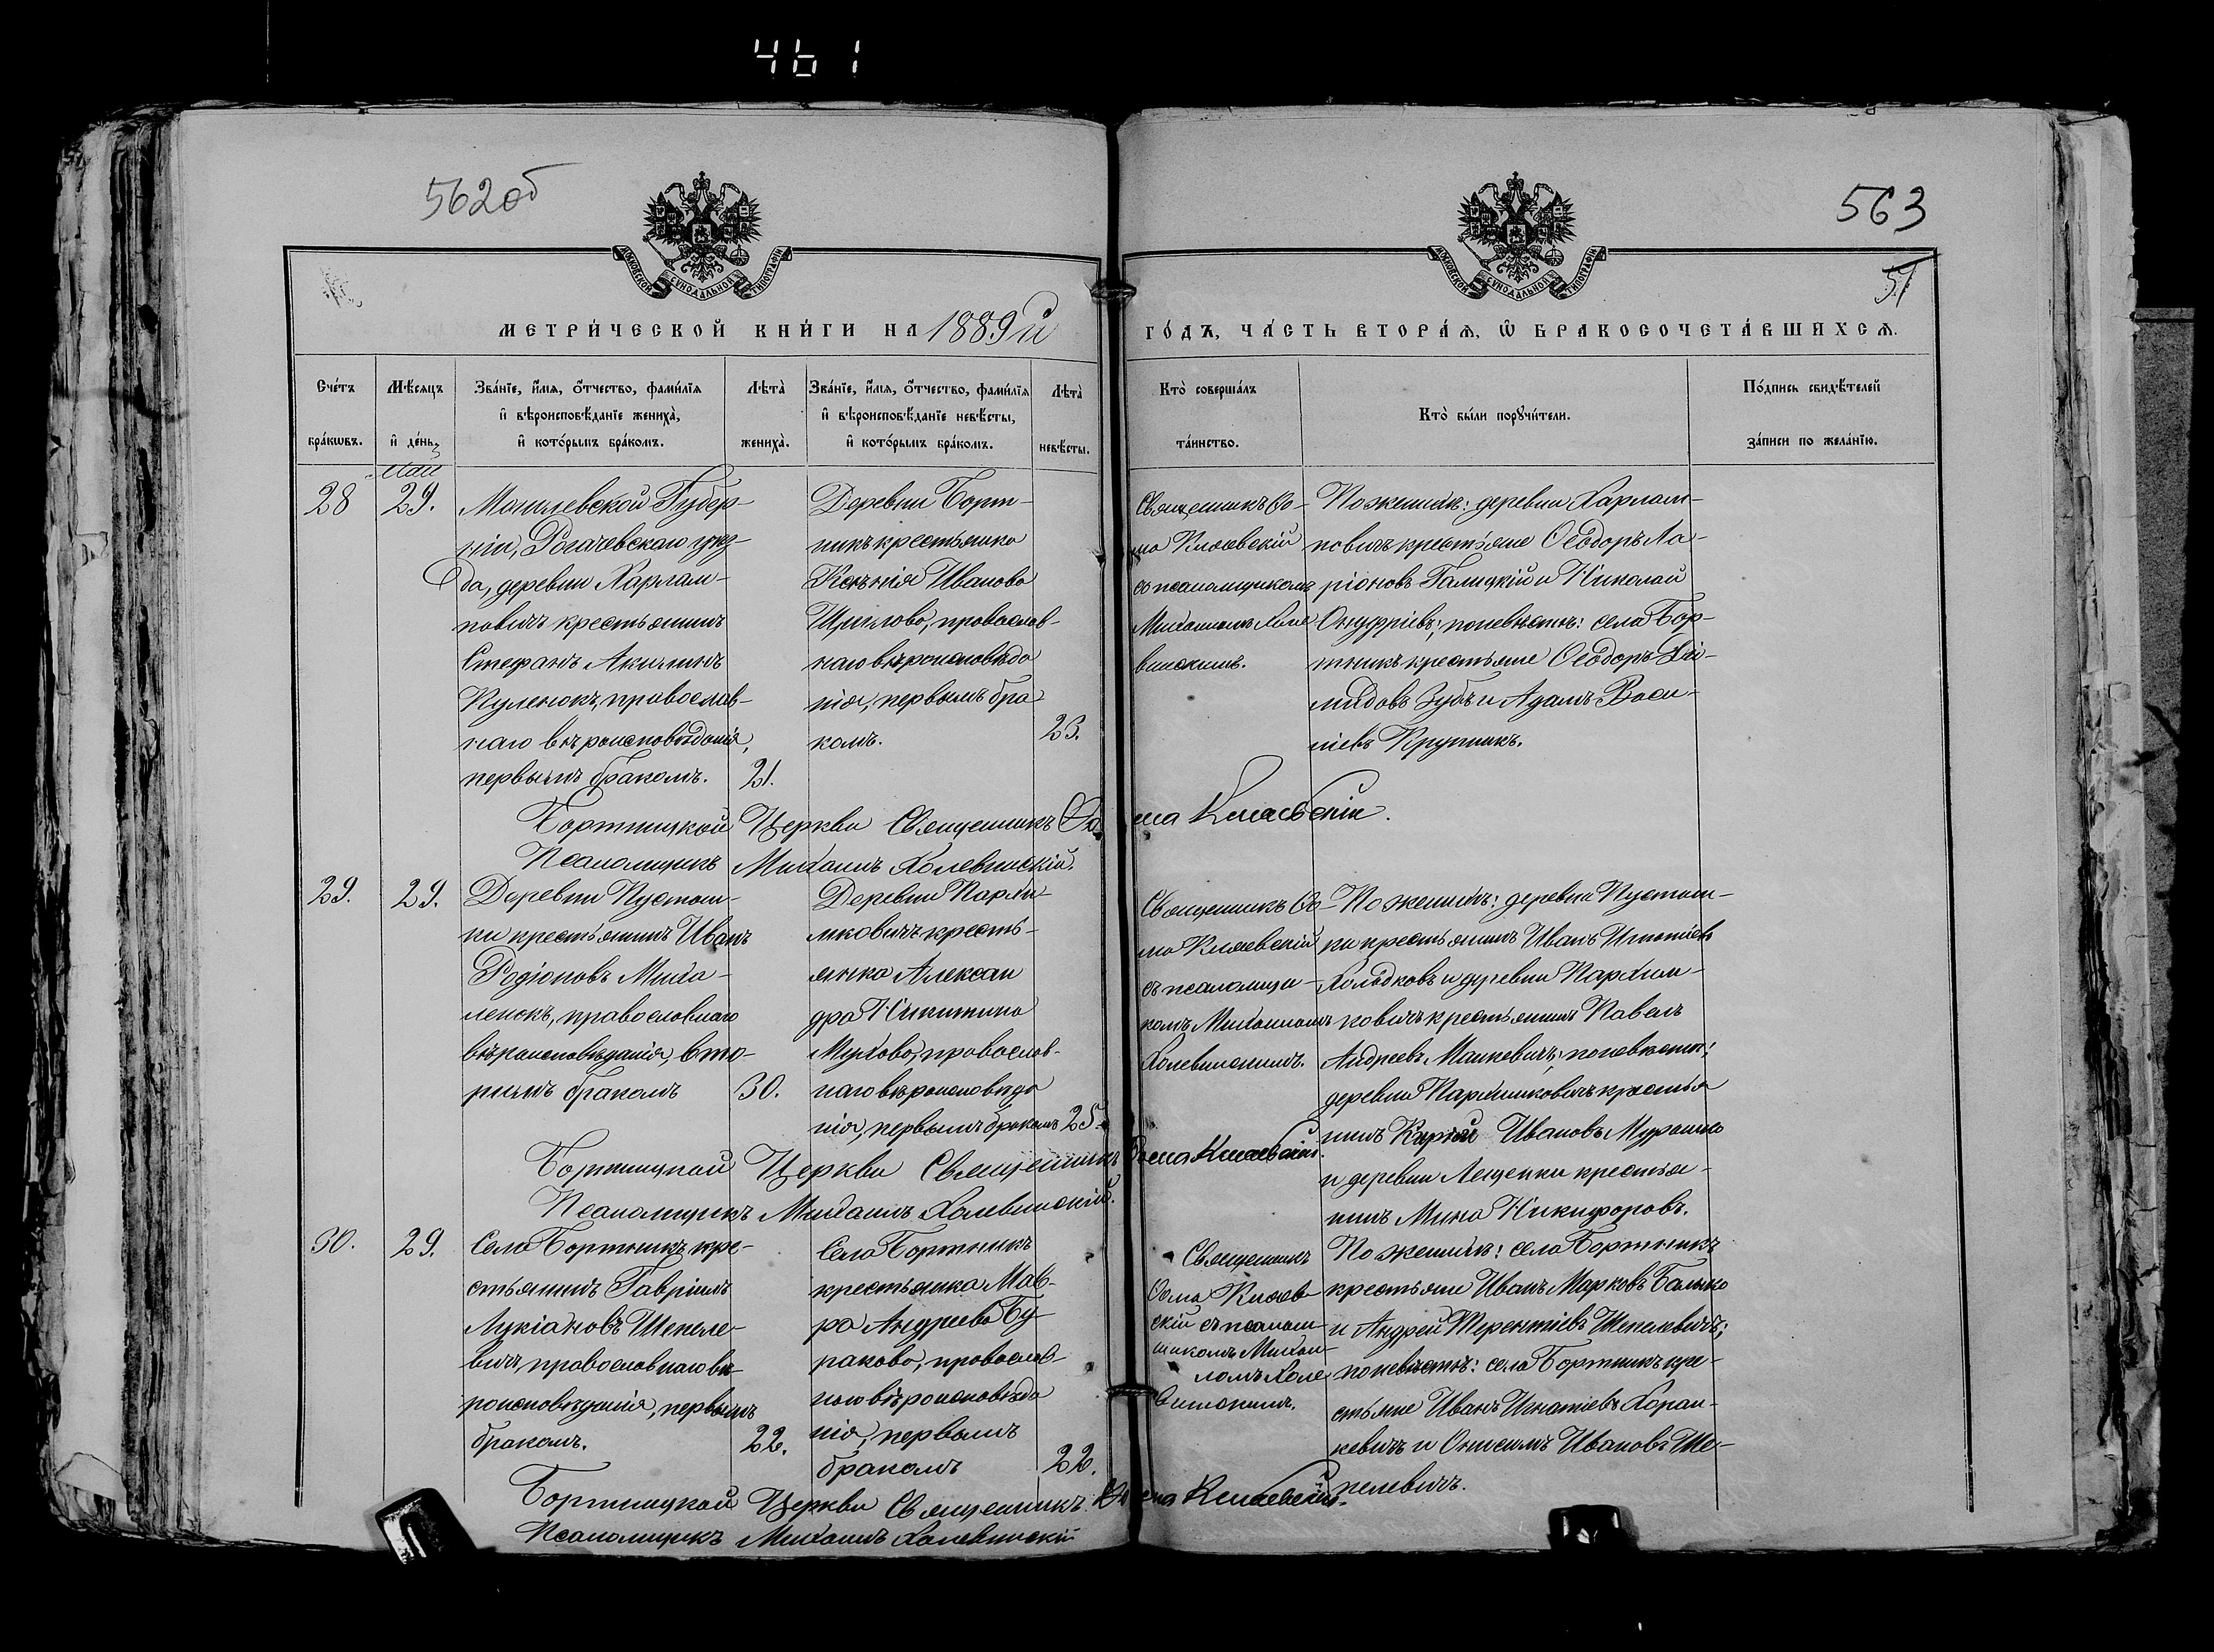 461
562об
563
51
МОСКОВСКОЙ СѴНОДАЛЬНОЙ ТИПОГРАФІИ
МОСКОВСКОЙ СѴНОДАЛЬНОЙ ТИПОГРАФІИ
МЕТРИ́ЧЕСКОЙ КНИ́ГИ НА 1889й
ГО́ДЪ, ЧА́СТЬ ВТОРА́Я, Ѿ БРАКОСОЧЕТА́ВШИХСЯ.
Сче́тъ бра́кѡвъ.
Мѣ́сяцъ и҆ де́нь.
Зва́нїе, и҆́мя, ѻ҆́тчество, фами́лїя и҆ вѣроисповѣ́данїе жениха̀, и҆ кото́рымъ бра́комъ.
Лѣта̀ жениха̀.
Зва́нїе, и҆́мя, ѻ҆́тчество, фами́лїя и҆ вѣроисповѣ́данїе невѣ́сты, и҆ кото́рымъ бра́комъ.
Лѣта̀ невѣ́сты.
Кто̀ соверша́лъ та́инство.
Кто̀ бы́ли порꙋчи́тели.
По́дпись свидѣ́телей за́писи по жела́нїю.
Май
28
29.
Могилевской Губер-
ніи, Рогачевскаго уѣз-
да, деревни Харлам-
повичъ крестьянинъ
Стефанъ Акилинъ
Куленокъ, православ-
наго вѣроисповѣданія,
первымъ бракомъ.
21.
Деревни Борт-
никъ крестьянка
Ксенія Иванова
Щиглова, православ-
наго вѣроисповѣда
нія, первымъ бра
комъ.
23.
Священникъ Ѳо-
ма Клаевскій
съ псаломщикомъ
Михаиломъ Холе
винскимъ.
По женихѣ: деревни Харлам-
повичъ крестьяне Ѳеодоръ Ла-
ріоновъ Галицкій и Николай
Онуфріевъ; по невѣстѣ: села Бор-
тникъ крестьяне Ѳеодоръ Ди-
мидовъ Зубъ и Адамъ Васи-
ліевъ Крупникъ.
Бортницкой Церкви Священникъ Ѳома Клаевскій.
Псаломщикъ Михаилъ Холевинскій.
29.
29.
Деревни Пустош-
ки крестьянинъ Иванъ
Родіоновъ Миха-
ленокъ, православнаго
вѣроисповѣданія, вто-
рымъ бракомъ
30.
Деревни Пархи-
мковичъ кресть-
янка Алексан
дра Никитина
Мухова, православ-
наго вѣроисповѣда
нія, первымъ бракомъ
25.
Священникъ Ѳо-
ма Клаевскій
съ псаломщи-
комъ Михаиломъ
Холевинскимъ.
По женихѣ: деревни Пустош-
ки крестьянинъ Иванъ Игнатіевъ
Холодковъ и деревни Пархим-
ковичъ крестьянинъ Павелъ
Андреевъ Мацкевичъ; по невѣстѣ:
деревни Пархимковичъ крестья
нинъ Иванъ Мурашко
и деревни Лещенки крестья-
нинъ Мина Никифоровъ.
Бортницкой Церкви Священникъ Ѳома Клаевскій.
Псаломщикъ Михаилъ Холевинскій.
30.
29.
Села Бортникъ кре-
стьянинъ Гавріилъ
Лукіановъ Шепеле-
вичъ, православнаго вѣ-
роисповѣданія, первымъ
бракомъ.
22.
Села Бортникъ
крестьянка Мав-
ра Андреева Бу-
ракова, православ-
наго вѣроисповѣда
нія, первымъ
бракомъ
22.
Священникъ
Ѳома Клаев
скій съ псалом-
щикомъ Михаи-
ломъ Холе
винскимъ.
По женихѣ: села Бортникъ
крестьяне Иванъ Марковъ Балыко
и Андрей Терентіевъ Шепелевичъ;
по невѣстѣ: села Бортникъ кре-
стьяне Иванъ Игнатіевъ Хоран-
кевичъ и Онисимъ Ивановъ Ше-
пелевичъ.
Бортницкой Церкви Священникъ Ѳома Клаевскій.
Псаломщикъ Михаилъ Холевинскій